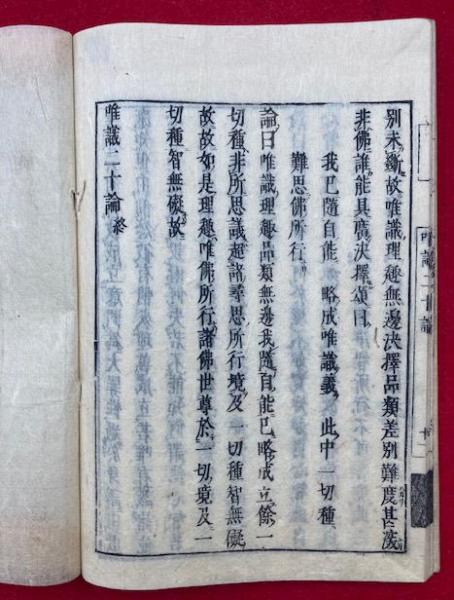 別未斷故唯識理趣無邊決擇品類差別難度甚深
非佛誰能具廣決擇頌曰
我已隨自能 略成唯識義 此中一切種
難思佛所行
論曰唯識理趣品類無邊我隨自能已略成立餘一
切種非所思議超諸尋思所行境及一切種智無礙
故故如是理趣唯佛所行諸佛世尊於一切境及一
切種智無礙故
唯識二十論 終
唯識二十論
十